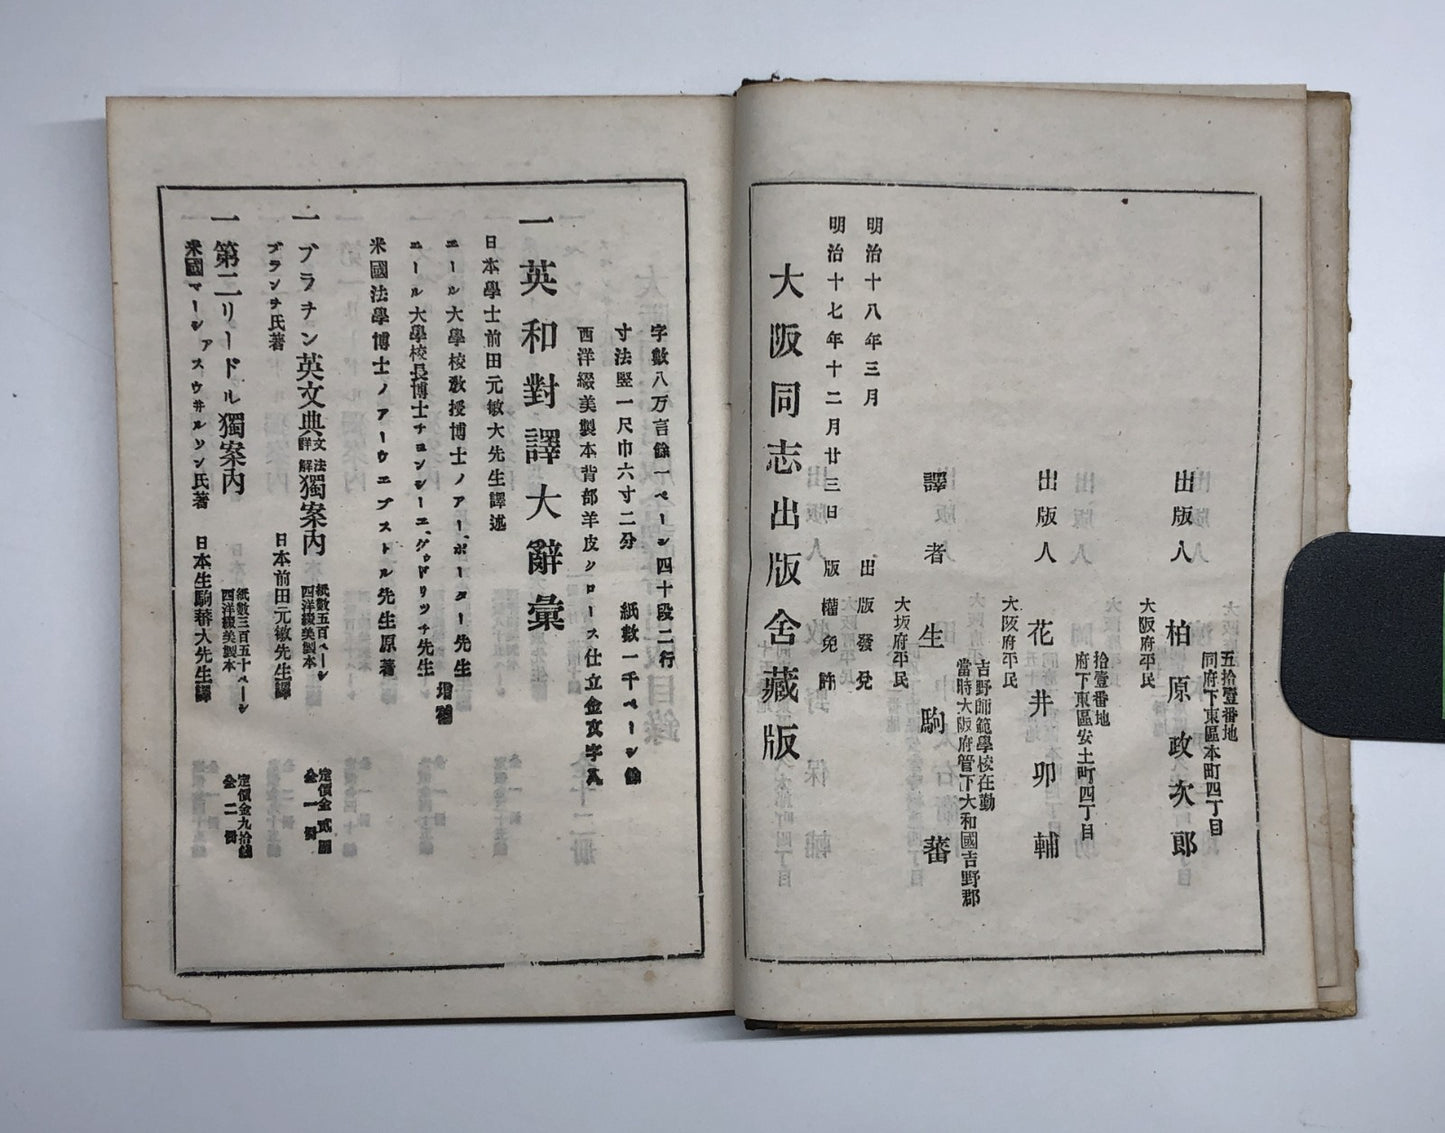 五拾壹番地
同府下東區本町四丁目
出版人　柏原政次郎
大阪府平民
拾壹番地
府下東區安土町四丁目
出版人　花井卯輔
大阪府平民
吉野師範學校在勤
當時大阪府管下大和國吉野郡
譯者　生駒蕃
大坂府平民
明治十八年三月　出版發兌
明治十七年十二月廿三日　版權免許
大阪同志出版舍藏版
字數八万言餘一ページ四十段二行
寸法竪一尺巾六寸二分　紙數一千ページ餘
西洋綴美製本背部羊皮クロース仕立金文字入
一英和對譯大辭彙
日本學士前田元敏大先生譯述
エール大學校敎授博士ノアーポーター先生
エール大學校長博士チョンシーエ、グゥドリッチ先生　增補
米國法學博士ノアーウエブストル先生原著
一ブラチン英文典文法詳解獨案内　紙數五百ページ西洋綴美製本　定價金貳圓全一冊
ブランチ氏著　日本前田元敏先生譯
一第二リードル獨案内　紙數三百五十ページ西洋綴美製本　定價金九拾錢全二冊
米國マーシアスウ井ルソン氏著　日本生駒蕃大先生譯